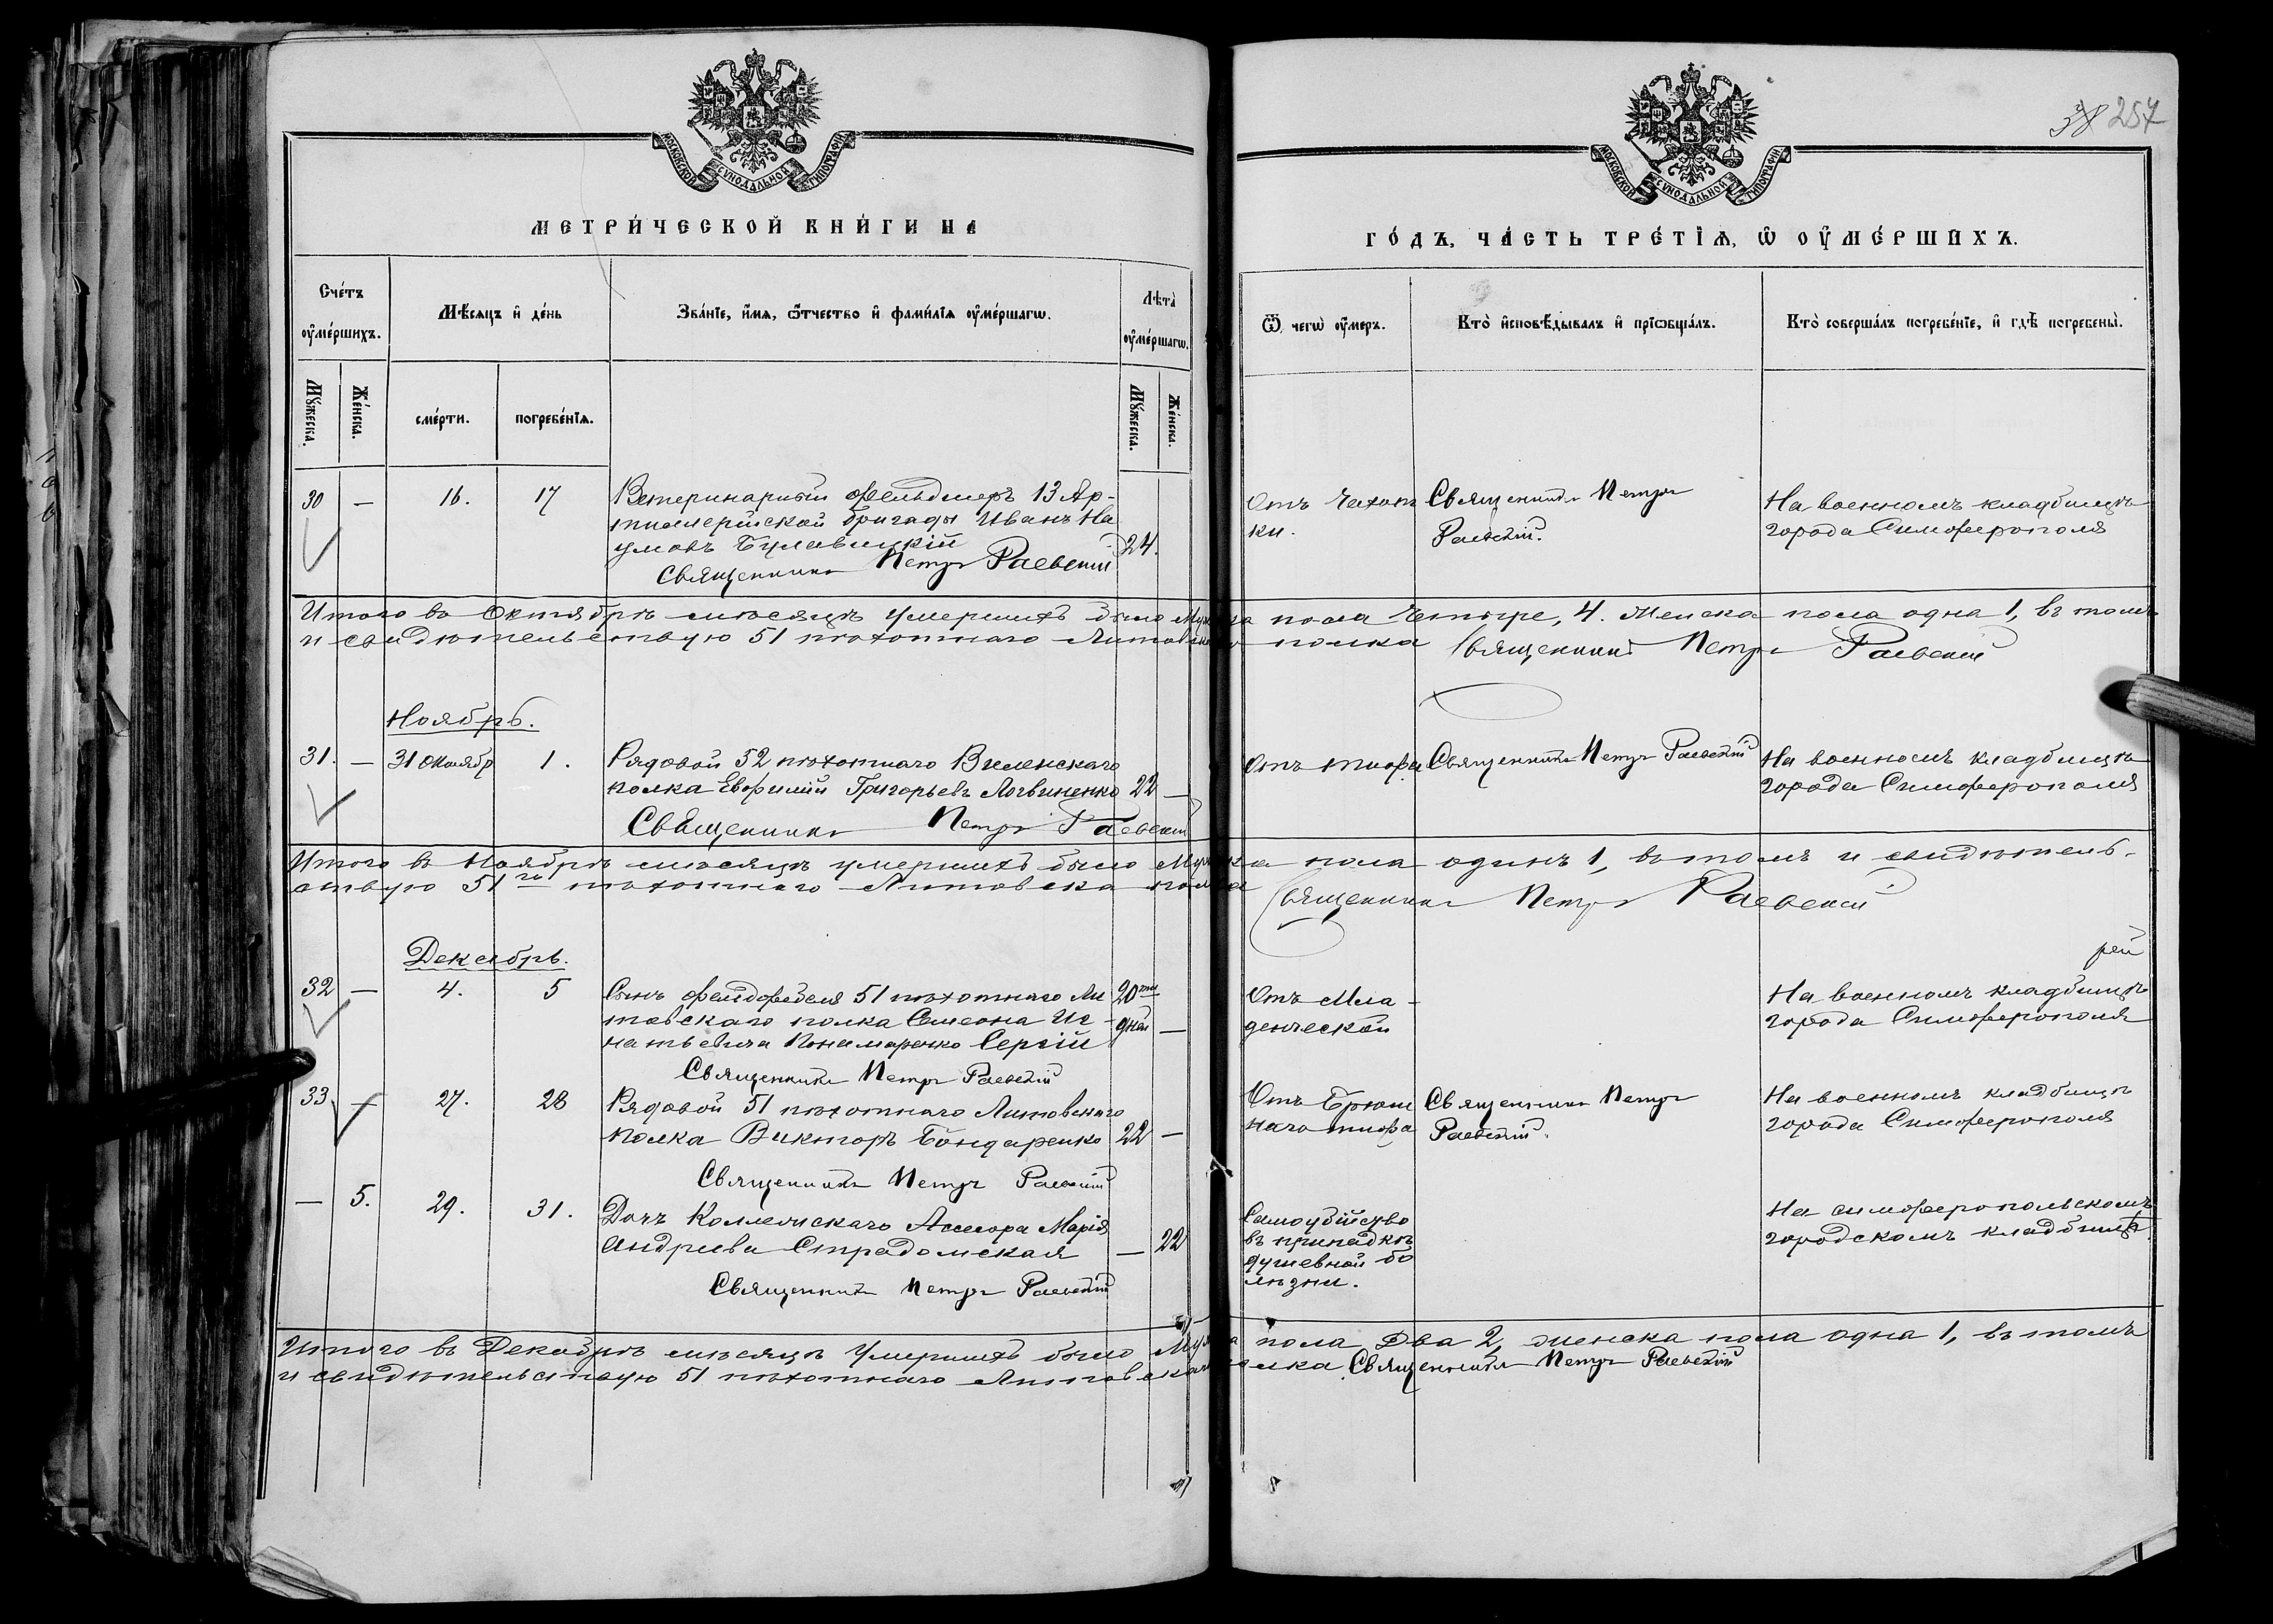 38 257
МОСКОВСКОЙ СѴНОДАЛЬНОЙ ТИПОГРАФІИ
МОСКОВСКОЙ СѴНОДАЛЬНОЙ ТИПОГРАФІИ
МЕТРИ́ЧЕСКОЙ КНИ́ГИ НА
ГО́ДЪ, ЧА́СТЬ ТРЕ́ТІѦ, Ѡ ОУМЕ́РШИХЪ.
Сче́тъ оуме́ршихъ.
Мѣ́сяцъ и де́нь
Зва́нїе, и́мя, ѻтчество и фами́лїя оуме́ршагѡ.
Лѣта̀ оуме́ршагѡ.
Ѿ чегѡ̀ оу́меръ.
Кто̀ исповѣ́дывалъ и прїѡбща́лъ.
Кто̀ соверша́лъ погребе́нїе, и гдѣ̀ погребены̀.
Мꙋ́жеска.
Же́нска.
сме́рти.
погребе́нїя.
Мꙋ́жеска.
Же́нска.
30 — 16. 17 Ветеринарный фельдшеръ 13 Ар-
тиллерійской бригады Иванъ На
умовъ Булавицкій 24.
Священникъ Петръ Раевскій
Отъ Чахот
ки.
Священникъ Петръ
Раевскій.
На военномъ кладбищѣ
города Симферополя
Итого въ Октябрѣ мѣсяцѣ умершихъ было Мужска пола Четыре, 4. Женска пола одна 1, въ томъ
и свидѣтельствую 51 пѣхотнаго Литовскаго полка Священникъ Петръ Раевскій
Ноябрь.
31. — 31 Октябр 1. Рядовой 52 пѣхотнаго Виленскаго
полка Евфимій Григорьевъ Логвиненко 22 —
Священникъ Петръ Раевскій
Отъ тифа
Священникъ Петръ Раевскій
На военномъ кладбищѣ
города Симферополя
Итого въ Ноябрѣ мѣсяцѣ умершихъ было Мужска пола одинъ 1, въ томъ и свидѣтель-
ствую 51го пѣхотнаго Литовска полка Священникъ Петръ Раевскій
Декабрь.
рей
32 — 4. 5 Сынъ фельдфебеля 51 пѣхотнаго Ли
товскаго полка Симеона Иг-
натьевича Пономаренко Сергій
20ти
дней —
Священникъ Петръ Раевскій
Отъ Мла-
денческой
На военномъ кладбищѣ
города Симферополя
33 — 27. 28 Рядовой 51 пѣхотнаго Литовскаго
полка Викторъ Бондаренко 22 —
Священникъ Петръ Раевскій
Отъ Брюш
наго тифа
Священникъ Петръ
Раевскій.
На военномъ кладбищѣ
города Симферополя
— 5. 29. 31. Дочь Коллежскаго Ассесора Марія
Андреева Страдомская — 22
Священникъ Петръ Раевскій
Самоубійство
въ припадкѣ
душевной бо
лѣзни.
На симферопольскомъ
городскомъ кладбищѣ
Итого въ Декабрѣ мѣсяцѣ Умершихъ было Мужска пола Два 2, женска пола одна 1, въ томъ
и свидѣтельствую 51 пѣхотнаго Литовскаго полка Священникъ Петръ Раевскій